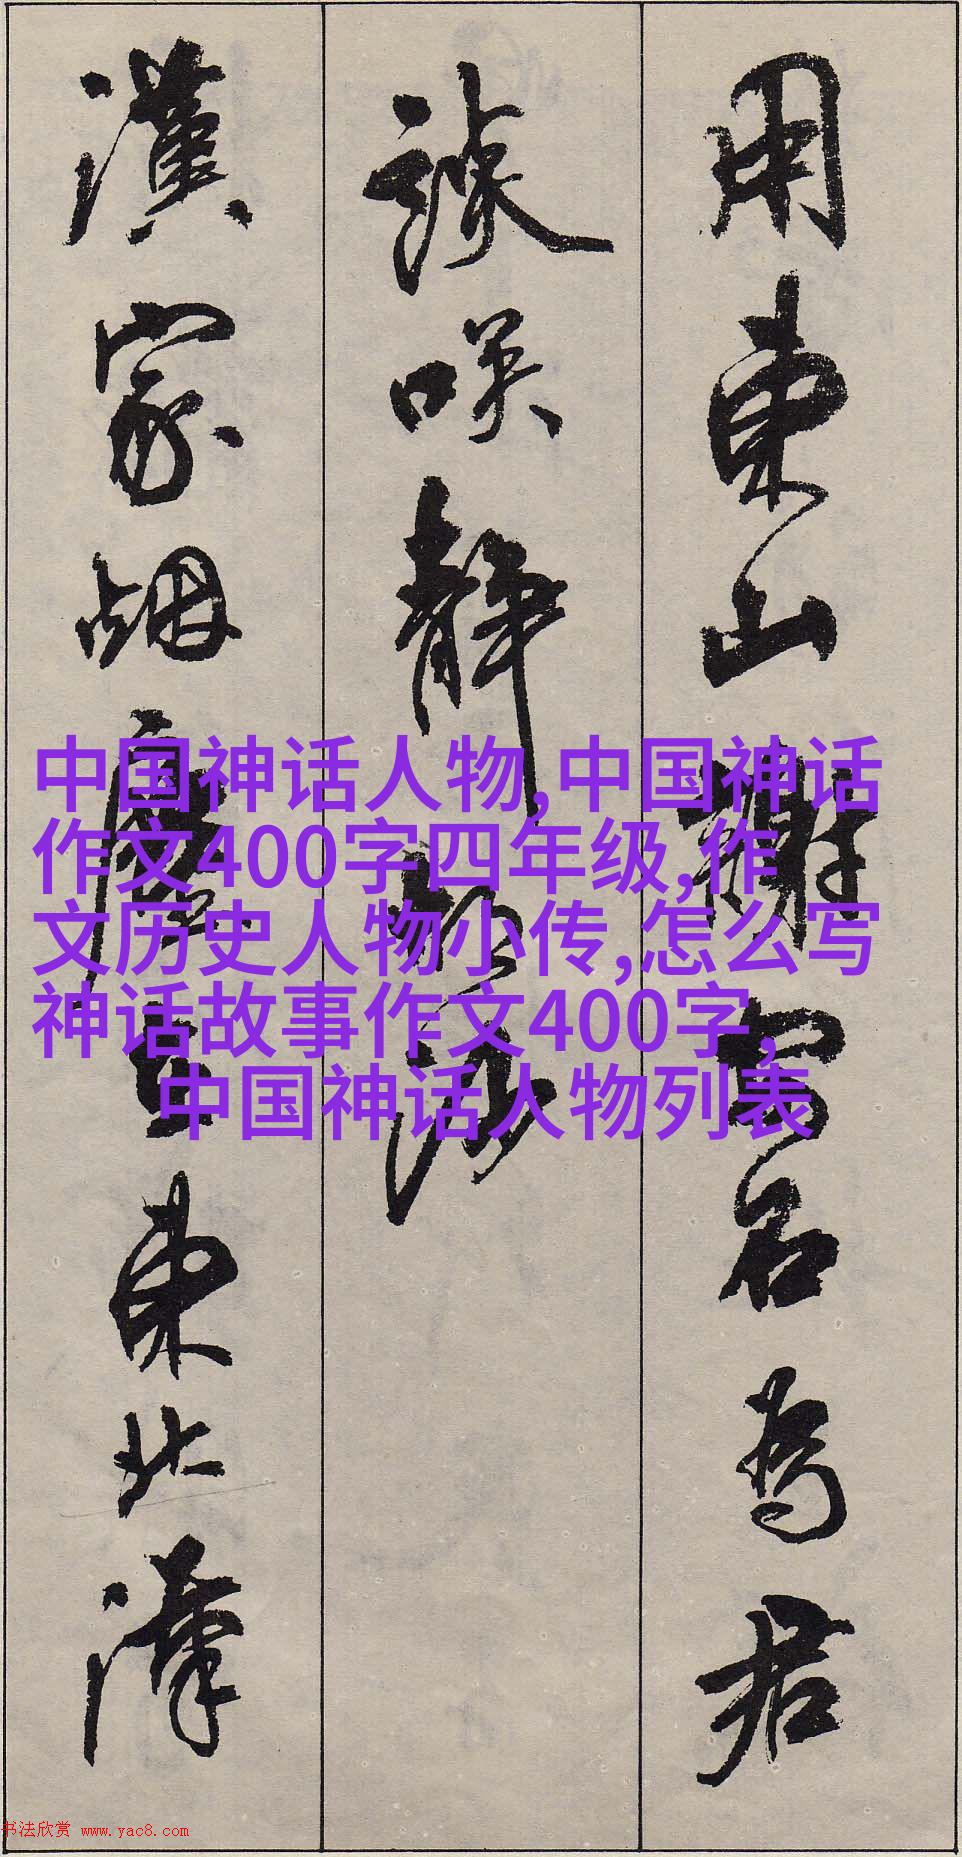 用東山謝安石為君
談笑靜胡沙
漢家烟塵在東北漢
中国神话人物,中国神话
作文400字四年级,作
文历史人物小传,怎么写
神话故事作文400字,
中国神话人物列表
书法欣赏 www.yac8.com